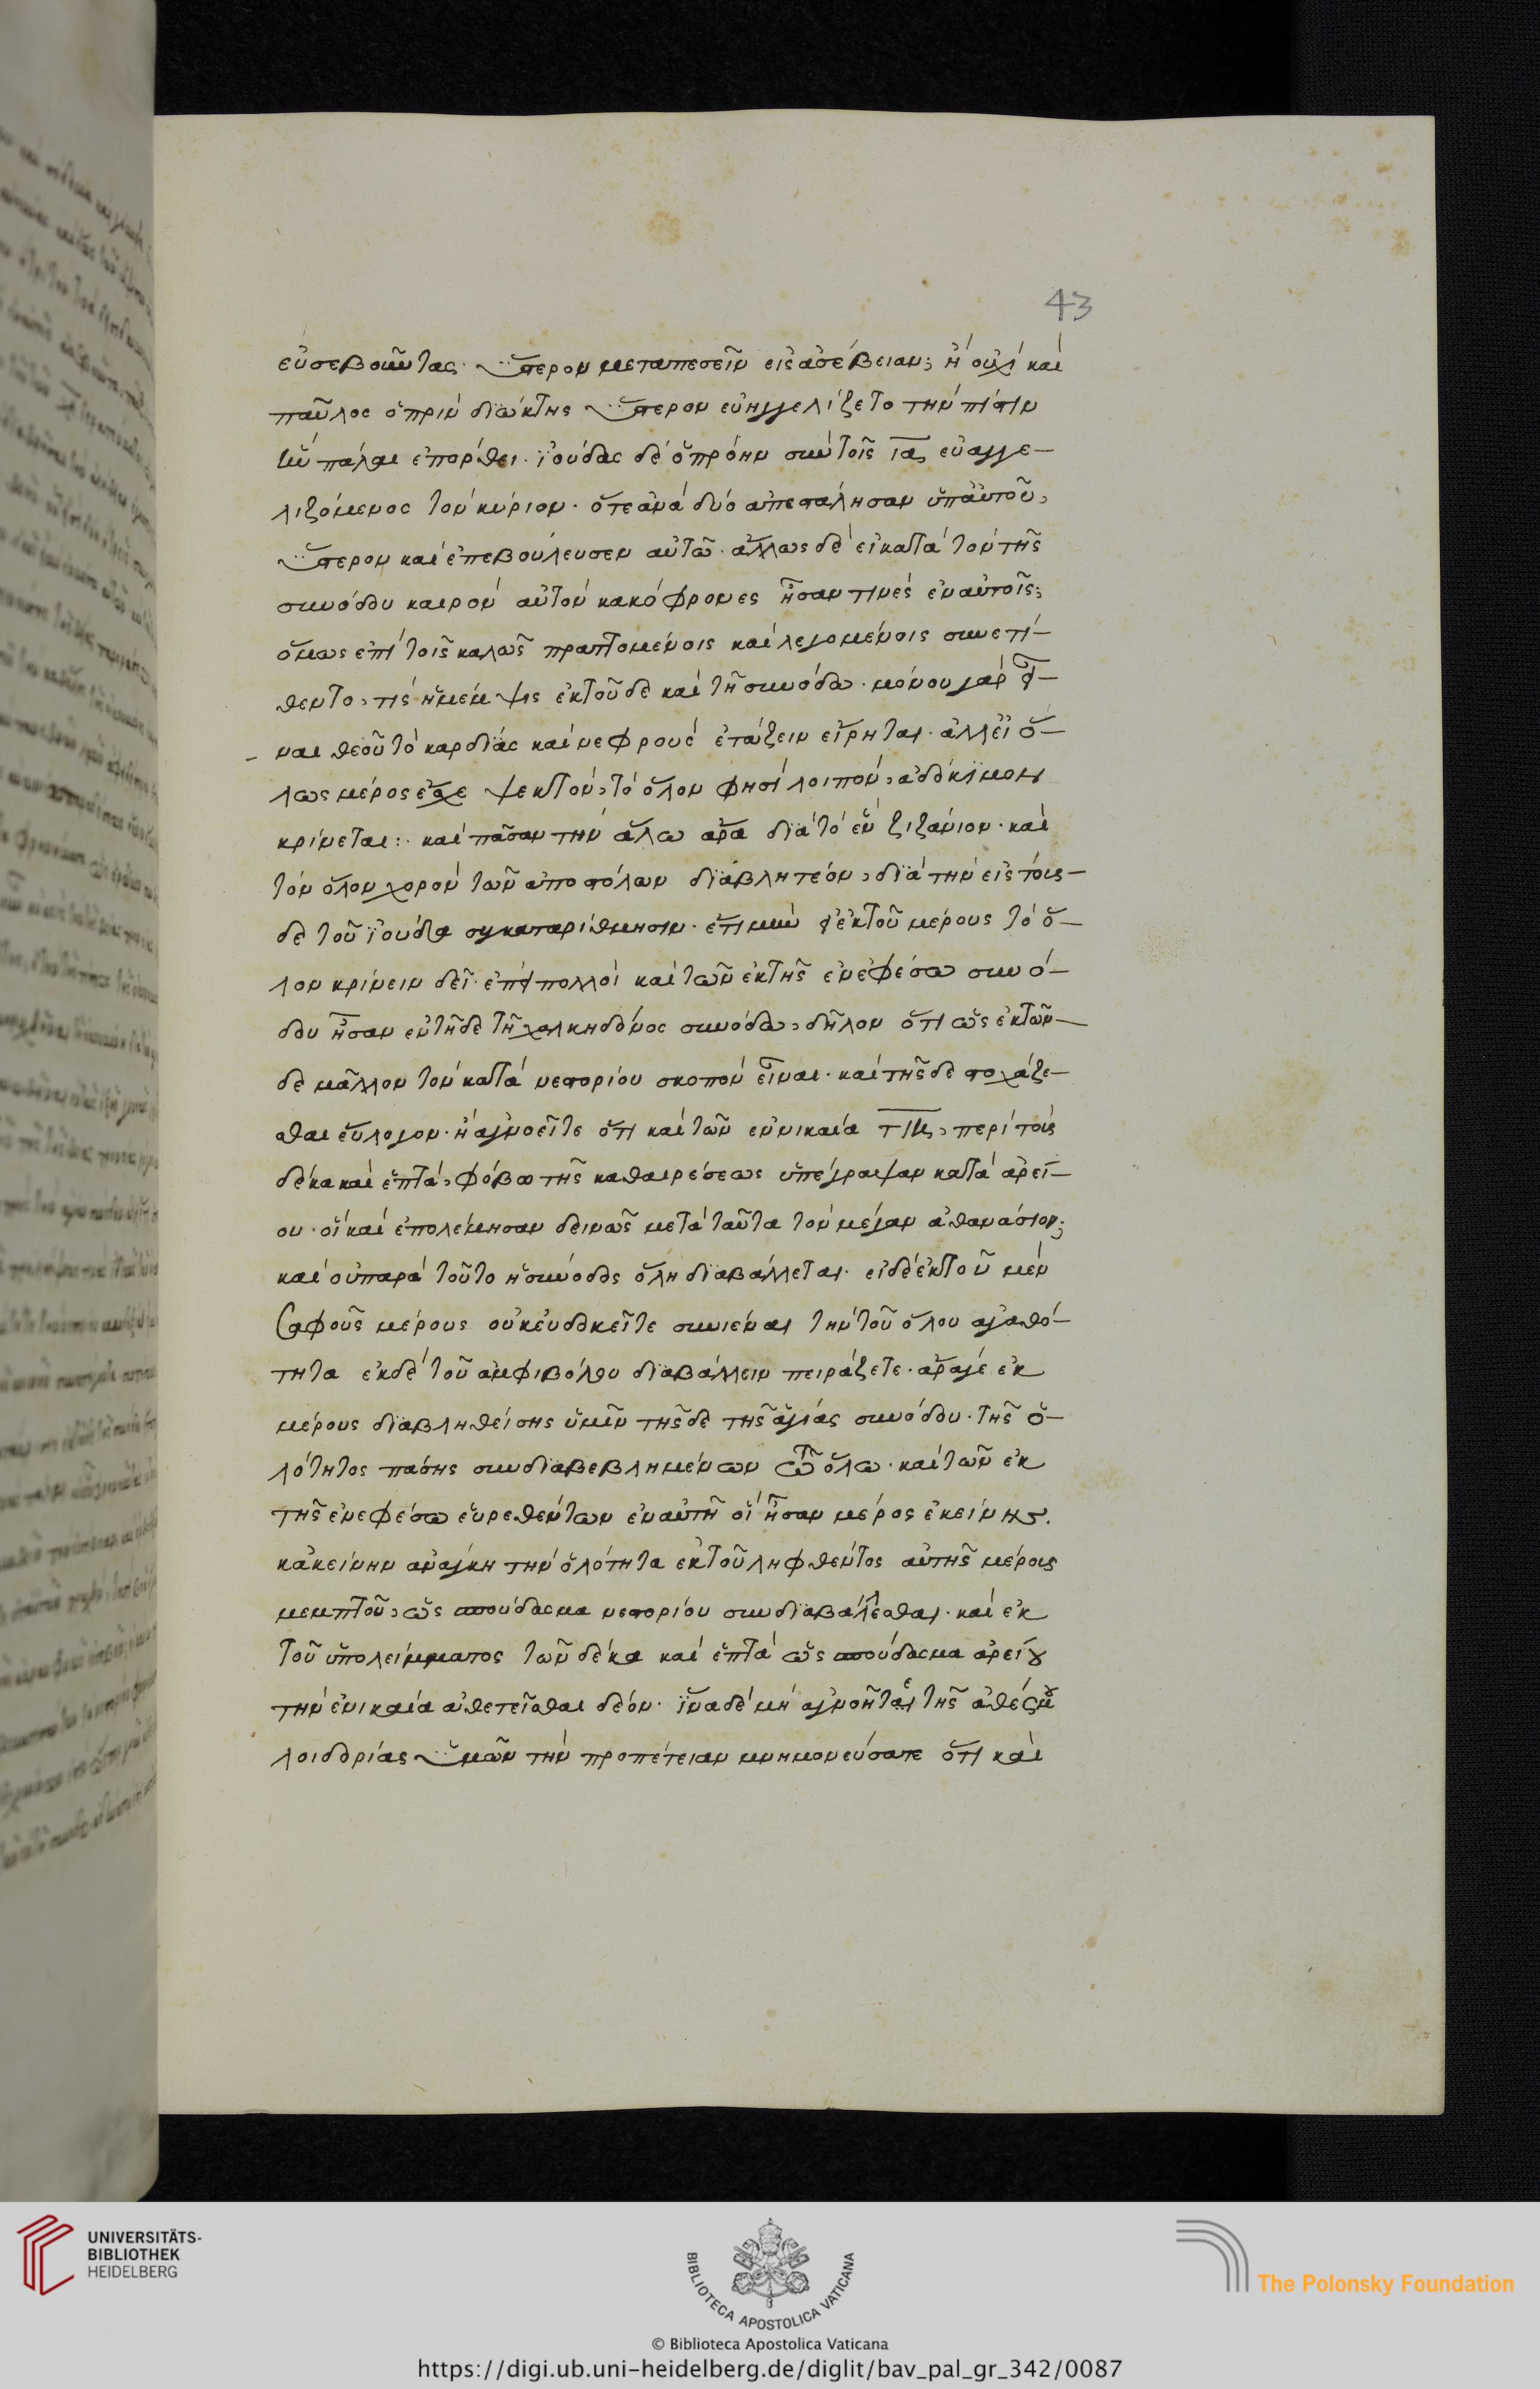 43
εὐσεβοῦντας. ὕστερον μεταπεσεῖν εἰς ἀσέβειαν; ἢ οὐχὶ καὶ
παῦλος ὁ πρὶν διώκτης ὕστερον εὐηγγελίζετο τὴν πίστιν
ἣν πάλαι ἐπόρθει. ἰούδας δὲ ὁ πρώην σὺν τοῖς ια, εὐαγγε-
λιζόμενος τὸν κύριον. ὅτε ἀνὰ δύο ἀπεστάλησαν ὑπ' αὐτοῦ,
ὕστερον καὶ ἐπεβούλευσεν αὐτῷ. ἄλλως δὲ εἰ κατὰ τὸν τῆς
συνόδου καιρὸν αὐτὸν κακόφρονες ἦσαν τινὲς ἐν αὐτοῖς;
ὅμως ἐπὶ τοῖς καλῶς πραττομένοις καὶ λεγομένοις συνετί-
θεντο, τίς ἡ μέμψις ἐκ τοῦδε καὶ τῇ συνόδω. μόνου γὰρ εἶ-
ναι θεοῦ τὸ καρδίας καὶ νεφροὺς ἐτάζειν εἴρηται. ἀλλ' εἰ ὅ-
λως μέρος εἶχε ψεκτὸν, τὸ ὅλον φησὶ λοιπὸν, ἀδόκιμον
κρίνεται:. καὶ πᾶσαν τὴν ἅλω ἄρα διὰ τὸ ἓν ζιζάνιον. καὶ
τὸν ὅλον χορὸν τῶν ἀποστόλων διαβλητέον, διὰ τὴν εἰς τούς-
δε τοῦ ἰούδα συγκαταρίθμησιν. ἔτι μὴν εἰ ἐκ τοῦ μέρους τὸ ὅ-
λον κρίνειν δεῖ. ἐπεὶ πολλοὶ καὶ τῶν ἐκ τῆς ἐν ἐφέσω συνό-
δου ἦσαν ἐν τῇδε τῇ χαλκηδόνος συνόδω, δῆλον ὅτι ὡς ἐκ τῶν-
δε μᾶλλον τὸν κατὰ νεστορίου σκοπὸν εἶναι. καὶ τῆσδε στοχάζε-
σθαι εὔλογον. ἢ ἀγνοεῖτε ὅτι καὶ τῶν ἐν νικαία τιη, περὶ τοὺς
δέκα καὶ ἑπτὰ, φόβω τῆς καθαιρέσεως ὑπέγραψαν κατὰ ἀρεί-
ου. οἳ καὶ ἐπολέμησαν δεινῶς μετὰ ταῦτα τὸν μέγαν ἀθανάσιον;
καὶ οὐ παρὰ τοῦτο ἡ σύνοδος ὅλη διαβάλλεται. εἰ δὲ ἐκ τοῦ μὲν
σαφοῦς μέρους οὐκ εὐδοκεῖτε συνιέναι τὴν τοῦ ὅλου ἀγαθό-
τητα ἐκ δὲ τοῦ ἀμφιβόλου διαβάλλειν πειράζετε. ἄρα γε ἐκ
μέρους διαβληθείσης ὑμῖν τῆσδε τῆς ἁγίας συνόδου. τῆς ὁ-
λότητος πάσης συνδιαβεβλημένων τῷ ὅλω. καὶ τῶν ἐκ
τῆς ἐν ἐφέσω εὑρεθέντων ἐν αὐτῇ οἳ ἦσαν μέρος ἐκείνης.
κἀκείνην ἀνάγκη τὴν ὁλότητα ἐκ τοῦ ληφθέντος αὐτῆς μέρους
μεμπτοῦ, ὡς σπούδασμα νεστορίου συνδιαβάλλεσθαι. καὶ ἐκ
τοῦ ὑπολείμματος τῶν δέκα καὶ ἑπτὰ ὡς σπούδασμα ἀρείου
τὴν ἐν νικαία ἀθετεῖσθαι δέον. ἵνα δὲ μὴ ἀγνοῆται τῆς ἀθέσμου
λοιδορίας ὑμῶν τὴν προπέτειαν μνημονεύσατε ὅτι καὶ
UNIVERSITÄTS-
BIBLIOTHEK
HEIDELBERG
BIBLIOTECA APOSTOLICA VATICANA
The Polonsky Foundation
© Biblioteca Apostolica Vaticana
https://digi.ub.uni-heidelberg.de/diglit/bav_pal_gr_342/0087